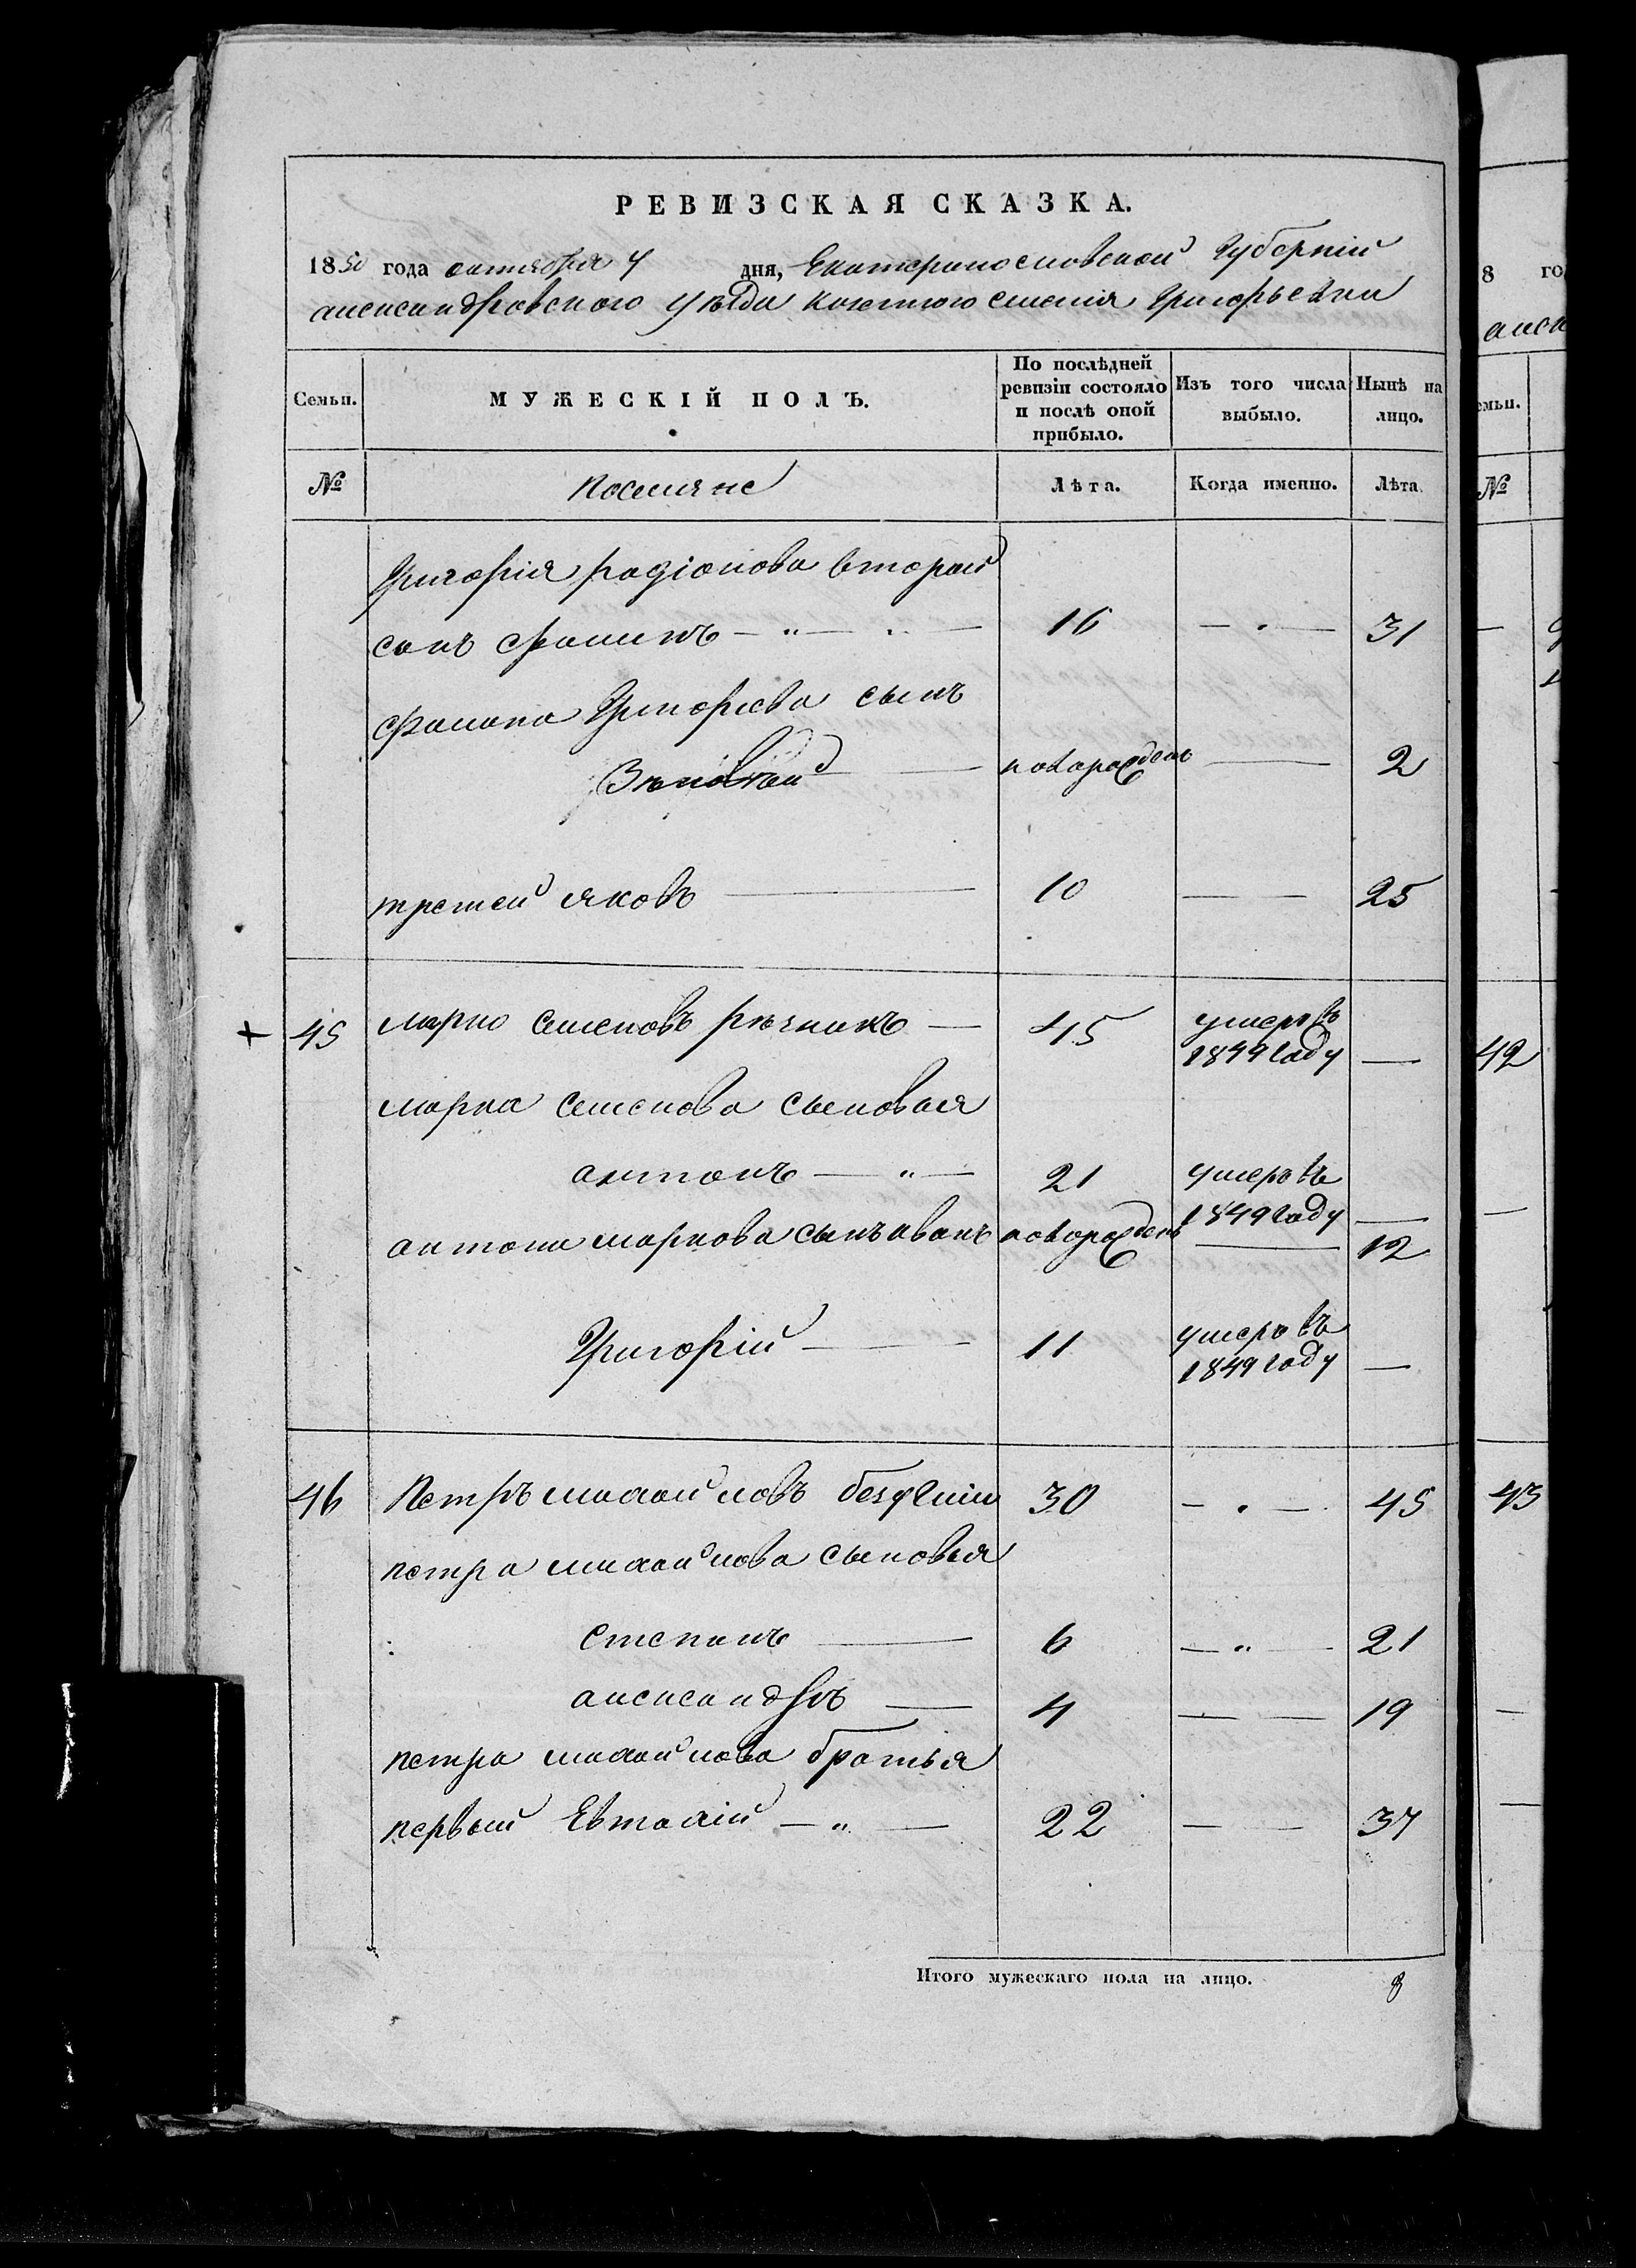 РЕВИЗСКАЯ СКАЗКА.
1850 года октября 4 дня, Екатеринославской Губерніи
александровского уезда казенного селенія Григорьевки
Семьи. МУЖЕСКІЙ ПОЛЪ. По послѣдней ревизіи состояло и послѣ оной прибыло. Изъ того числа выбыло. Нынѣ на лицо.
№ Поселяне Лѣта. Когда именно. Лѣта.
Григорія радіонова вторай
сынъ филипъ — " — 16 — 31
филипа Григорьева сынъ
новорожденъ — 2
третей яковъ — 10 — 25
+ 45 марко семеновъ — 45 умеръ въ
1849 году —
марка семенова сыновья
антонъ — " — 21 умеръ въ
1849 году —
антона маркова сынъ иванъ новорожденъ — 12
Григорій — 11 умеръ въ
1849 году —
46 Петръ михайловъ безуглій 30 — 45
петра михайлова сыновья
степанъ — 6 — " — 21
александръ — 4 — 19
петра михайлова братья
первый Евтихій — " — 22 — 37
Итого мужескаго пола на лицо. 8
8 го
алек
емьи.
№
42
43